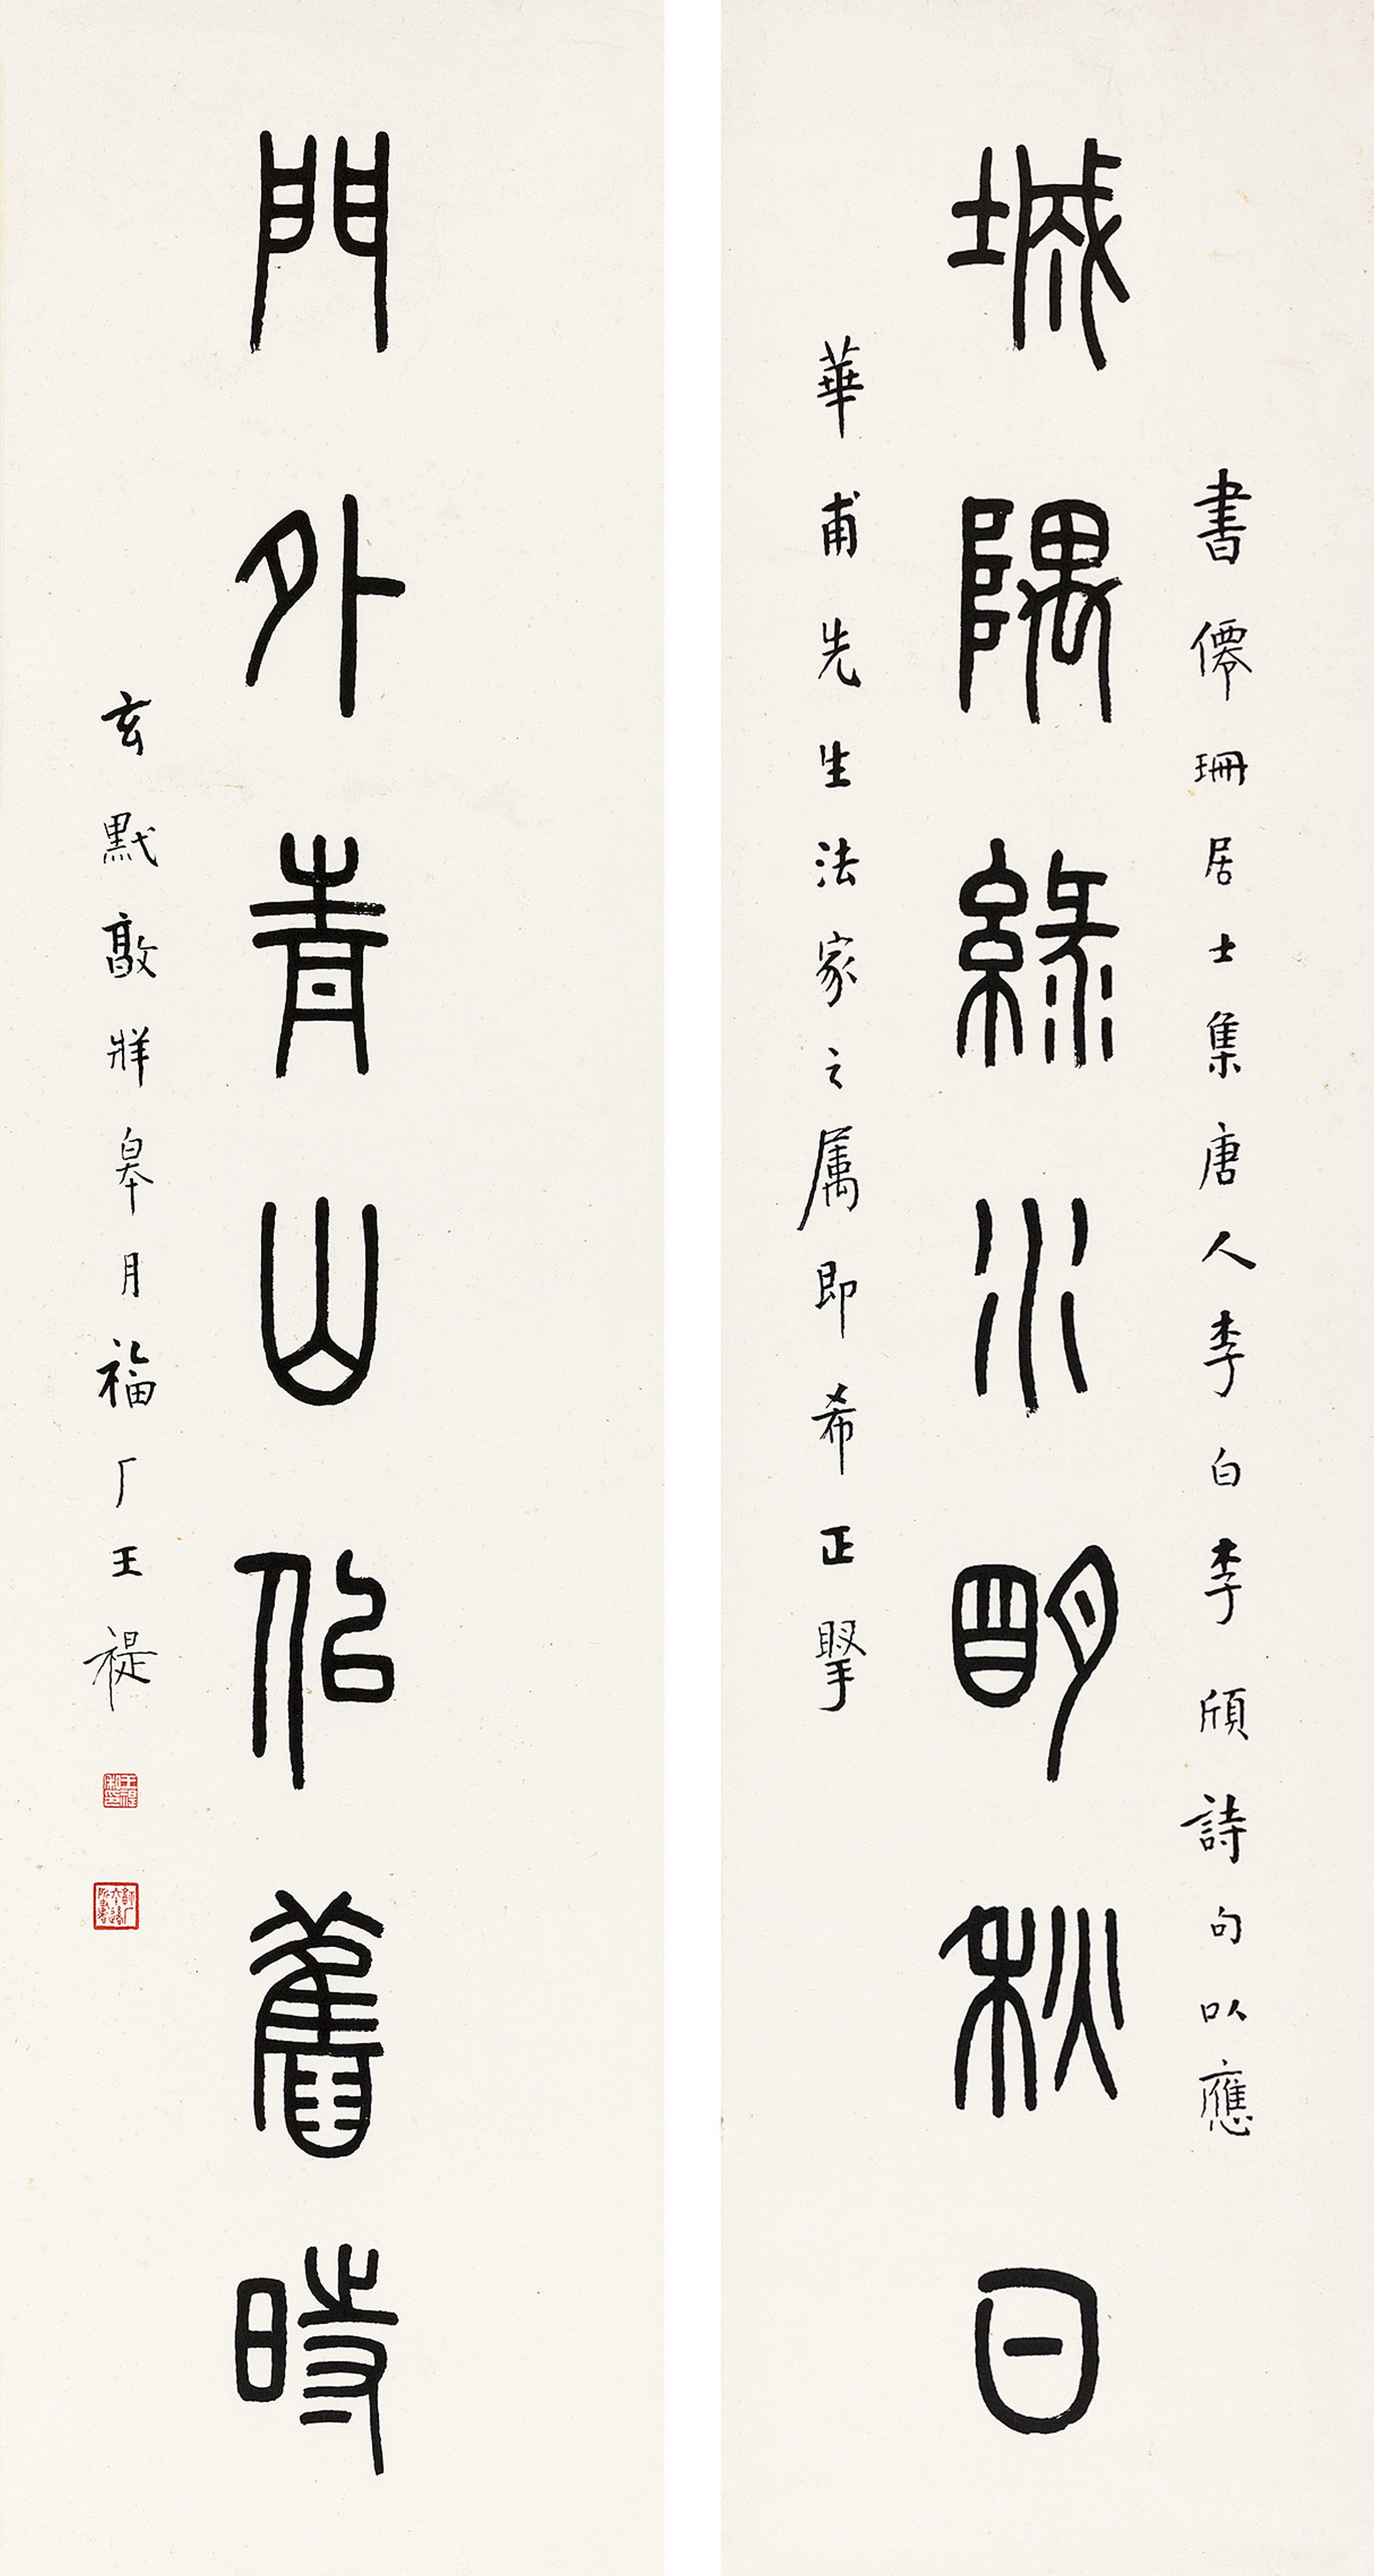 書僊珊居士集唐人李白李頎詩句㕥應
城隅綠水明秋日
華甫先生法家之属即希正掔
門外青山佀舊時
玄黓敦牂皋月福厂王禔
王禔私印